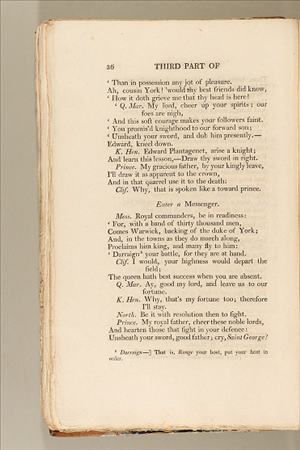 26 THIRD PART OF
‘ Than in possession any jot of pleasure.
Ah, cousin York! 'would thy best friends did know,
‘ How it doth grieve me that thy head is here!
‘ Q. Mar. My lord, cheer up your spirits; our
foes are nigh,
‘ And this soft courage makes your followers faint.
‘ You promis'd knighthood to our forward son;
‘ Unsheath your sword, and dub him presently.—
Edward, kneel down.
K. Hen. Edward Plantagenet, arise a knight;
And learn this lesson,—Draw thy sword in right.
Prince. My gracious father, by your kingly leave,
I'll draw it as apparent to the crown,
And in that quarrel use it to the death.
Clif. Why, that is spoken like a toward prince.
Enter a Messenger.
Mess. Royal commanders, be in readiness:
‘ For, with a band of thirty thousand men,
Comes Warwick, backing of the duke of York;
And, in the towns as they do march along,
Proclaims him king, and many fly to him:
‘ Darraign* your battle, for they are at hand.
Clif. I would, your highness would depart the
field;
The queen hath best success when you are absent.
Q. Mar. Ay, good my lord, and leave us to our
fortune.
K. Hen. Why, that's my fortune too; therefore
I'll stay.
North. Be it with resolution then to fight.
Prince. My royal father, cheer these noble lords,
And hearten those that fight in your defence:
Unsheath your sword, good father; cry, Saint George!
* Darraign—] That is, Range your host, put your host in
order.